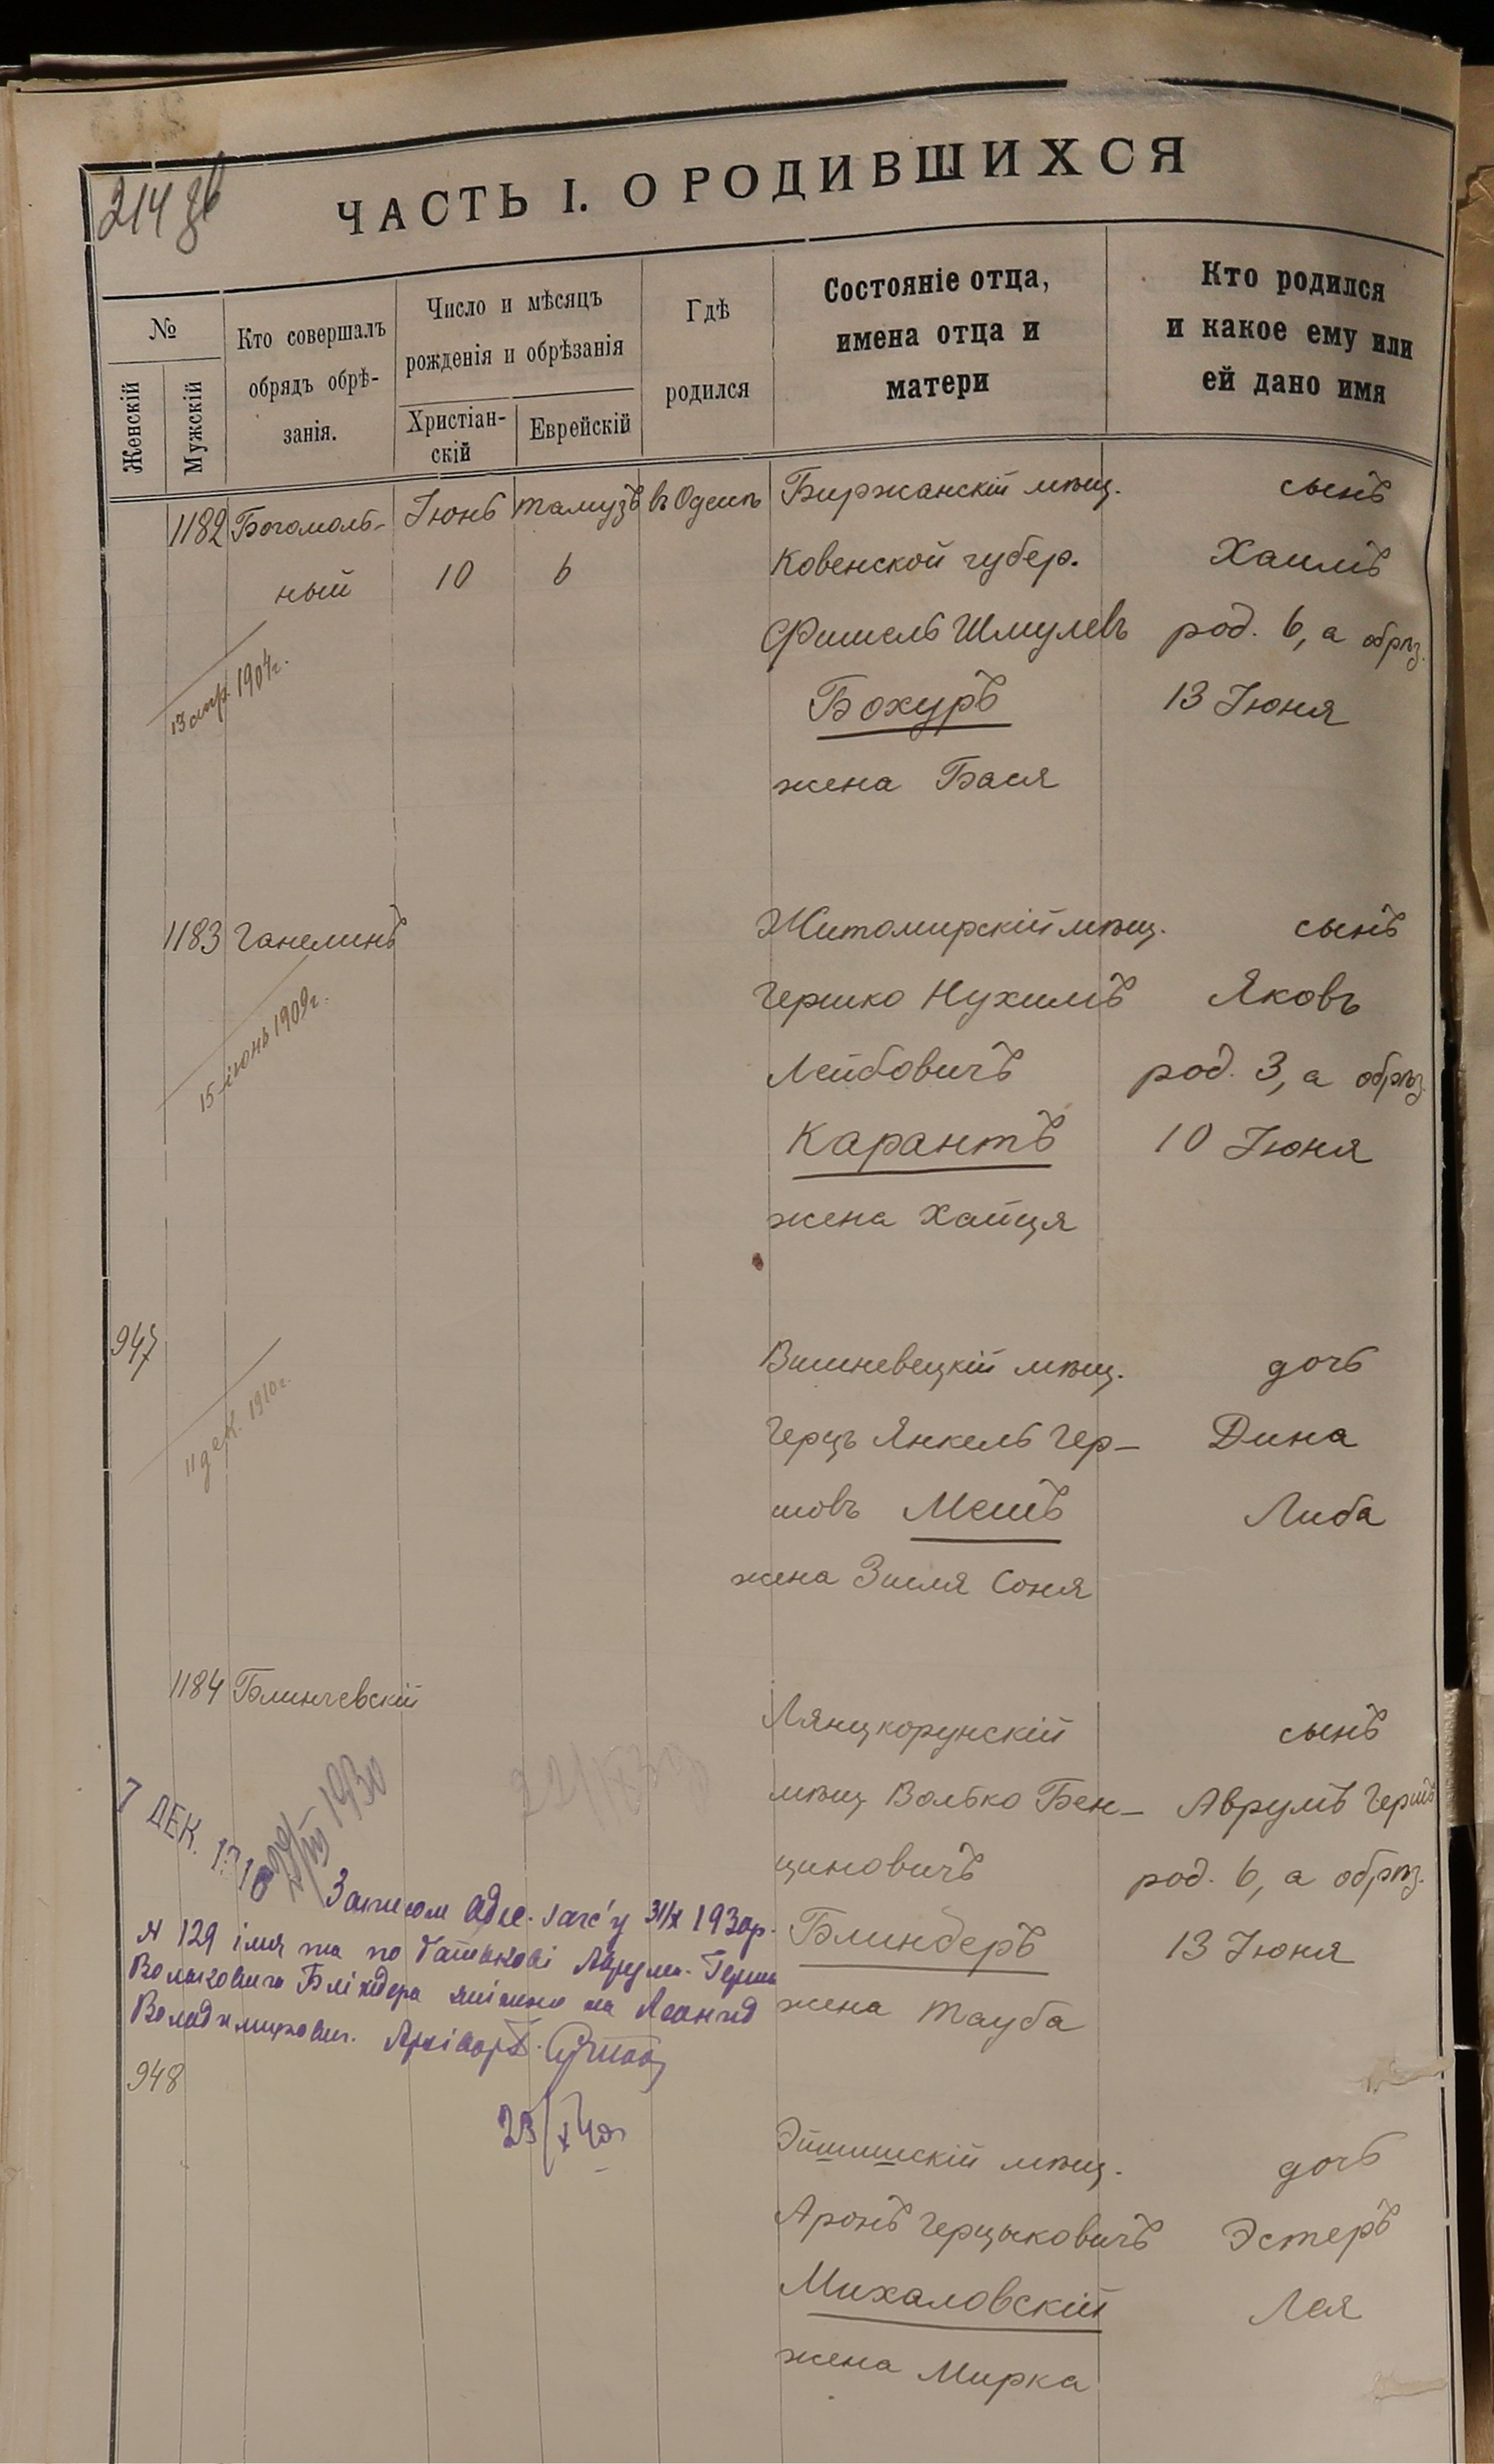 214 об
ЧАСТЬ I. О РОДИВШИХСЯ
№
Женскій
Мужскій
Кто совершалъ
обрядъ обрѣ-
занія.
Число и мѣсяцъ
рожденія и обрѣзанія
Христіан-
скій
Еврейскій
Гдѣ
родился
Состояніе отца,
имена отца и
матери
Кто родился
и какое ему или
ей дано имя
1182 Богомоль- Іюнь тамузъ въ Одессѣ Биржанскій мѣщ. сынъ
ный 10 6 Ковенской губер. Хаимъ
Фишель Шмулевъ род. 6, а обрѣз.
13 апр. 1904г. Бохуръ 13 Іюня
жена Бася
1183 Ганелинъ Житомирскій мѣщ. сынъ
Гершко Нухимъ Яковъ
15 іюнь 1909г. Лейбовичъ род. 3, а обрѣз.
Карантъ 10 Іюня
жена Хайця
947 Вишневецкій мѣщ. дочь
11 дек. 1910г. Герцъ Янкель Гер- Дина
шовъ Мешъ Либа
жена Зисля Соня
1184 Блинчевскій Лянцкорунскій сынъ
мѣщ Волько Бен- Аврумъ Гершъ
циновичъ род. 6, а обрѣз.
Блиндеръ 13 Іюня
жена Тауба
7 ДЕК.
1930
Записом Одес. загс'у 31/X 1930р.
N 129 імя та по батькові Аврума-Герша
Вольковича Бліндера змінено на Леонід
Володимирович. Архіваріус
23/X
948 Эйшишскій мѣщ. дочь
Аронъ Герцыковичъ Эстеръ
Михаловскій Лея
жена Мирка